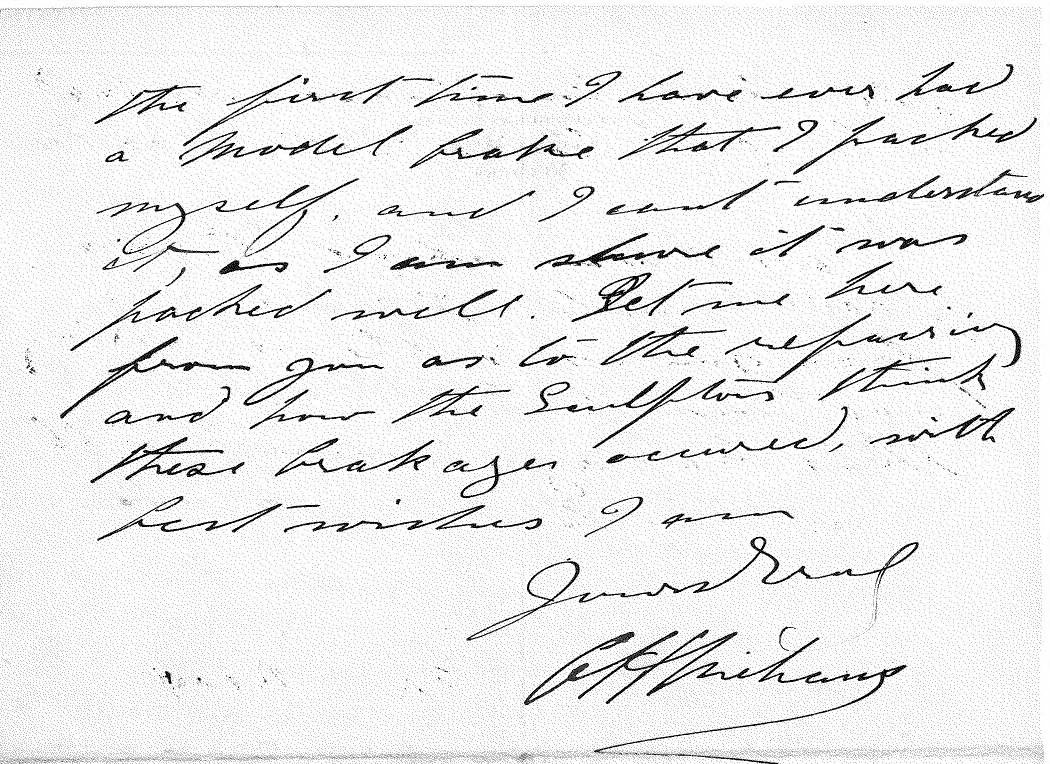 the first time I have ever had
a Model brake that I packed
myself, and I cant understand
it, as I am shure it was
packed well. Let me here
from you as to the repairing
and how the Sculptors think
these brakages occured, with
best wishes I am
Yours Truly
C H Niehaus